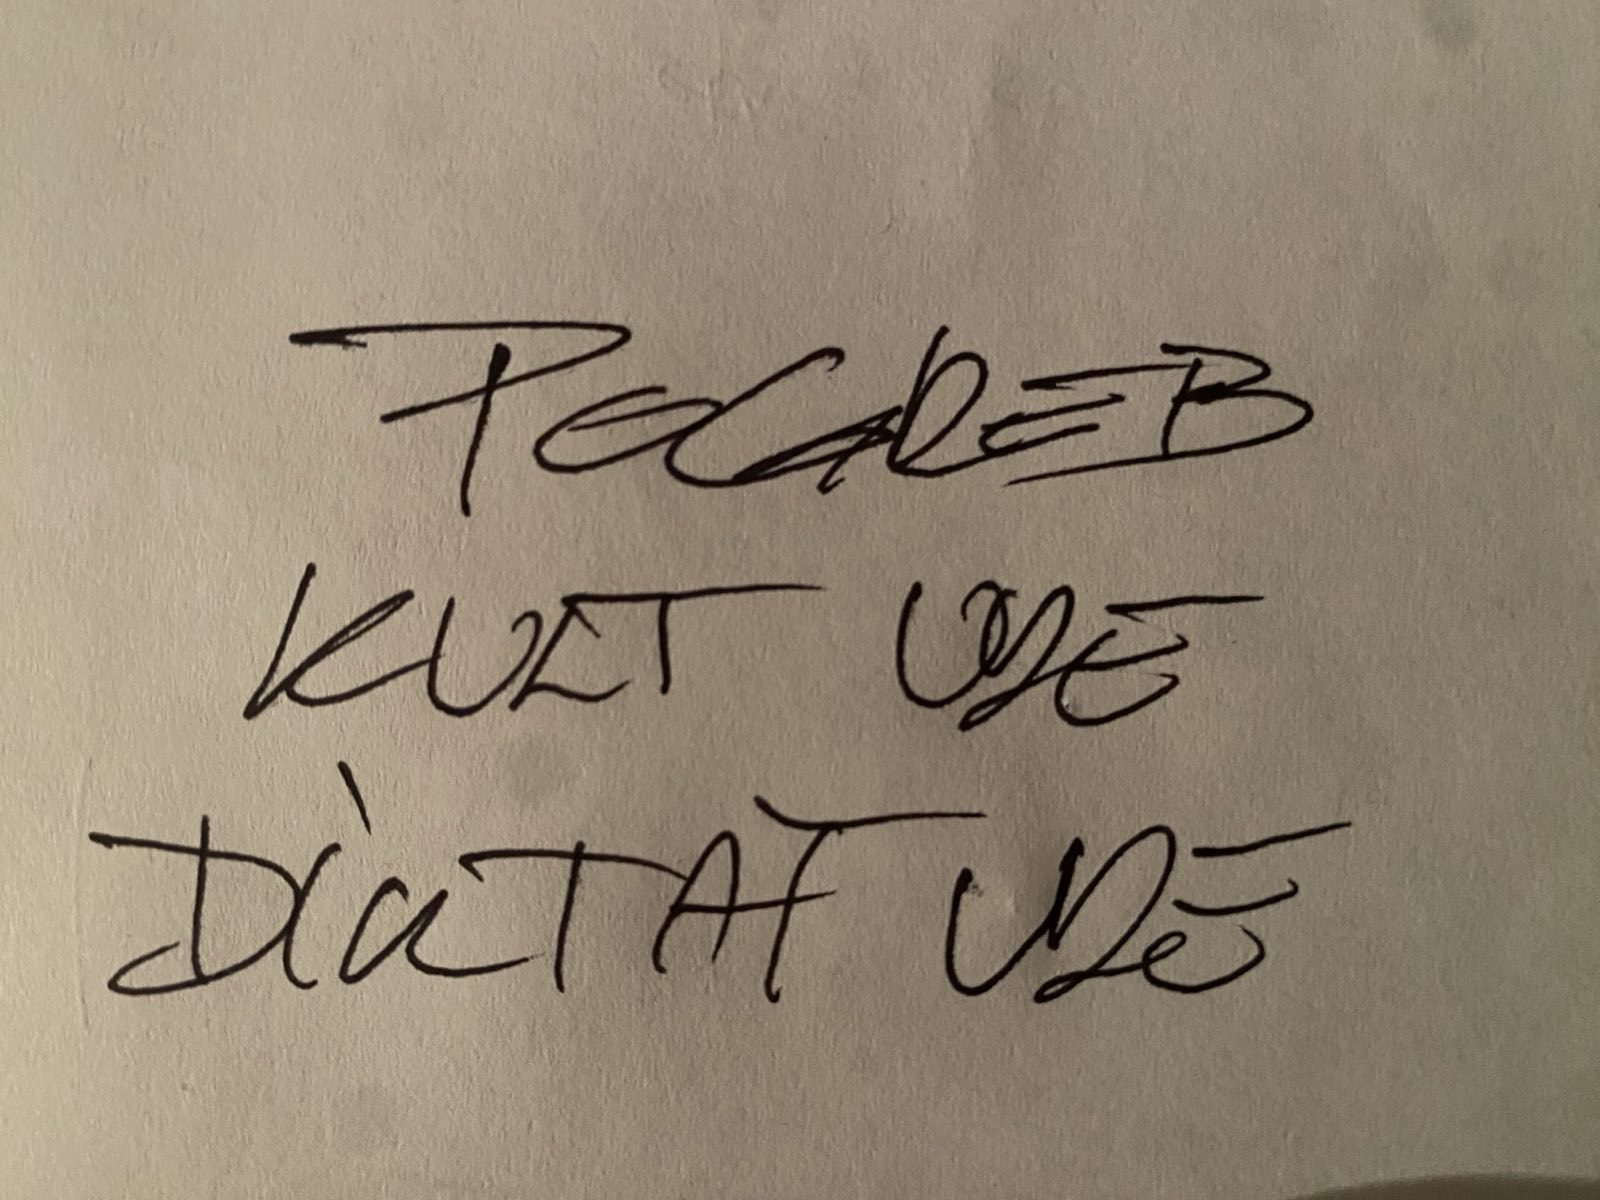 POGREB
KULT URE
DIKTAT URE